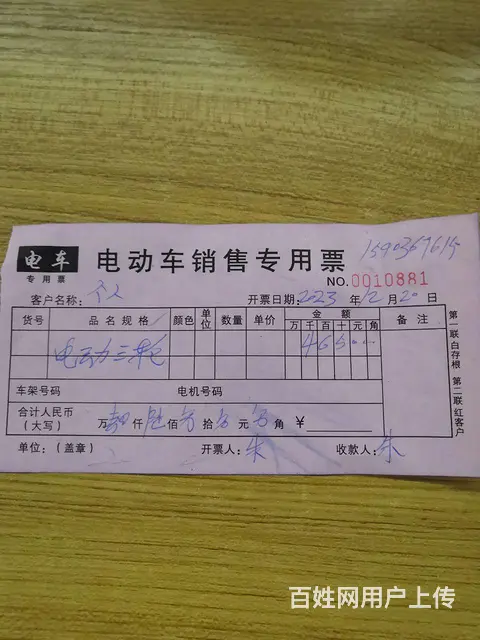 电车 电动车销售专用票
专用票 NO.0010881
客户名称：个人 开票日期：2023年12月20日
货号 品名规格 颜色 单位 数量 单价 金额 备注
万 千 百 十 元 角
电动三轮 4 6 5
车架号码 电机号码
合计人民币（大写） 万 仟 佰 拾 元 角 ￥
单位：（盖章） 开票人：朱 收款人：朱
第一联白存根 第二联红客户
百姓网用户上传